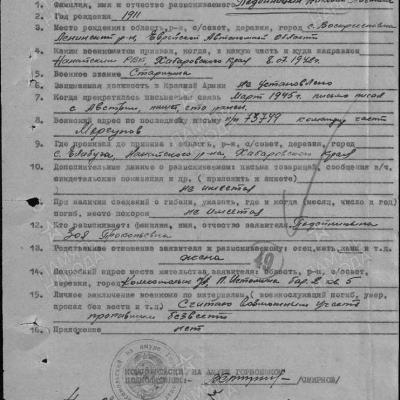 1. Фамилия, имя и отчество разыскиваемого
2. Год рождения 1911
3. Место рождения: область, р-н, с/совет, деревня, город с. Воскресеновка
Ленинский р-н, Еврейской Автономной области
4. Каким военкоматом призван, когда, в какую часть и куда направлен
Нанайским РВК, Хабаровского края 8.07.1942г.
5. Военное звание Старшина
6. Занимаемая должность в Красной Армии не установлено
7. Когда прекратилась письменная связь Март 1945г. письмо писал
с Австрии, пишет, что ранен.
8. Военный адрес по последнему письму п/п 73749 командир части
Моргунов
9. Где проживал до призыва: область, р-н, с/совет, деревня, город
с. Елабуга, Нанайского р-на, Хабаровского края
10. Дополнительные данные о разыскиваемом: письма товарищей, сообщения в/ч,
свидетельские показания и др. (приложить к анкете)
не имеется
При наличии сведений о гибели, указать, где и когда (месяц, число и год)
погиб, место похорон не имеется
12. Кто разыскивает: фамилия, имя, отчество заявителя
Зоя Прокопьевна
13. Родственные отношения заявителя к разыскиваемому: отец, мать, жена и т.д.
жена
14. Подробный адрес места жительства заявителя: область, р-н, с/совет,
деревня, город Комсомольск
бар. 2 кв 5
15. Личное заключение военкома по материалам (военнослужащий погиб, умер,
пропал без вести и т.д.) Считаю возможным учесть
пропавшим безвести
16. Приложение нет
19
КОМСОМОЛЬСКИЙ НА АМУРЕ ГОРВОЕНКОМ
ПОДПОЛКОВНИК:- /СМИРНОВ/